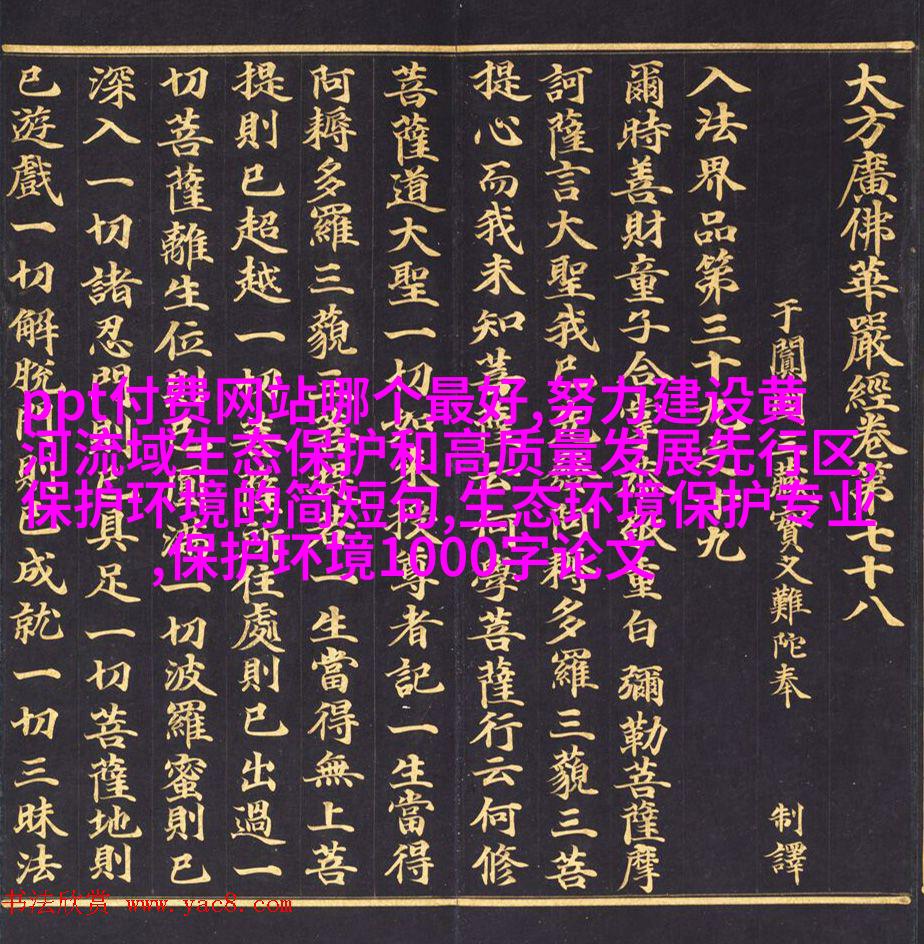 大方廣佛華嚴經卷第七十八
于闐國三藏實叉難陀奉 制譯
入法界品第三十九之十九
爾時善財童子合掌恭敬重白彌勒菩薩摩
訶薩言大聖我已先發阿耨多羅三藐三菩
提心而我未知菩薩云何學菩薩行云何修
菩薩道大聖一切如來授尊者記一生當得
阿耨多羅三藐三菩提若一生當得無上菩
提則已超越一切菩薩所住處則已出過一
切菩薩離生位則已圓滿一切波羅蜜則已
深入一切諸忍門則已具足一切菩薩地則
已遊戲一切解脫門則已成就一切三昧法
ppt付费网站哪个最好,努力建设黄
河流域生态保护和高质量发展先行区,
保护环境的简短句,生态环境保护专业
,保护环境1000字论文
书法欣赏 www.yac8.com